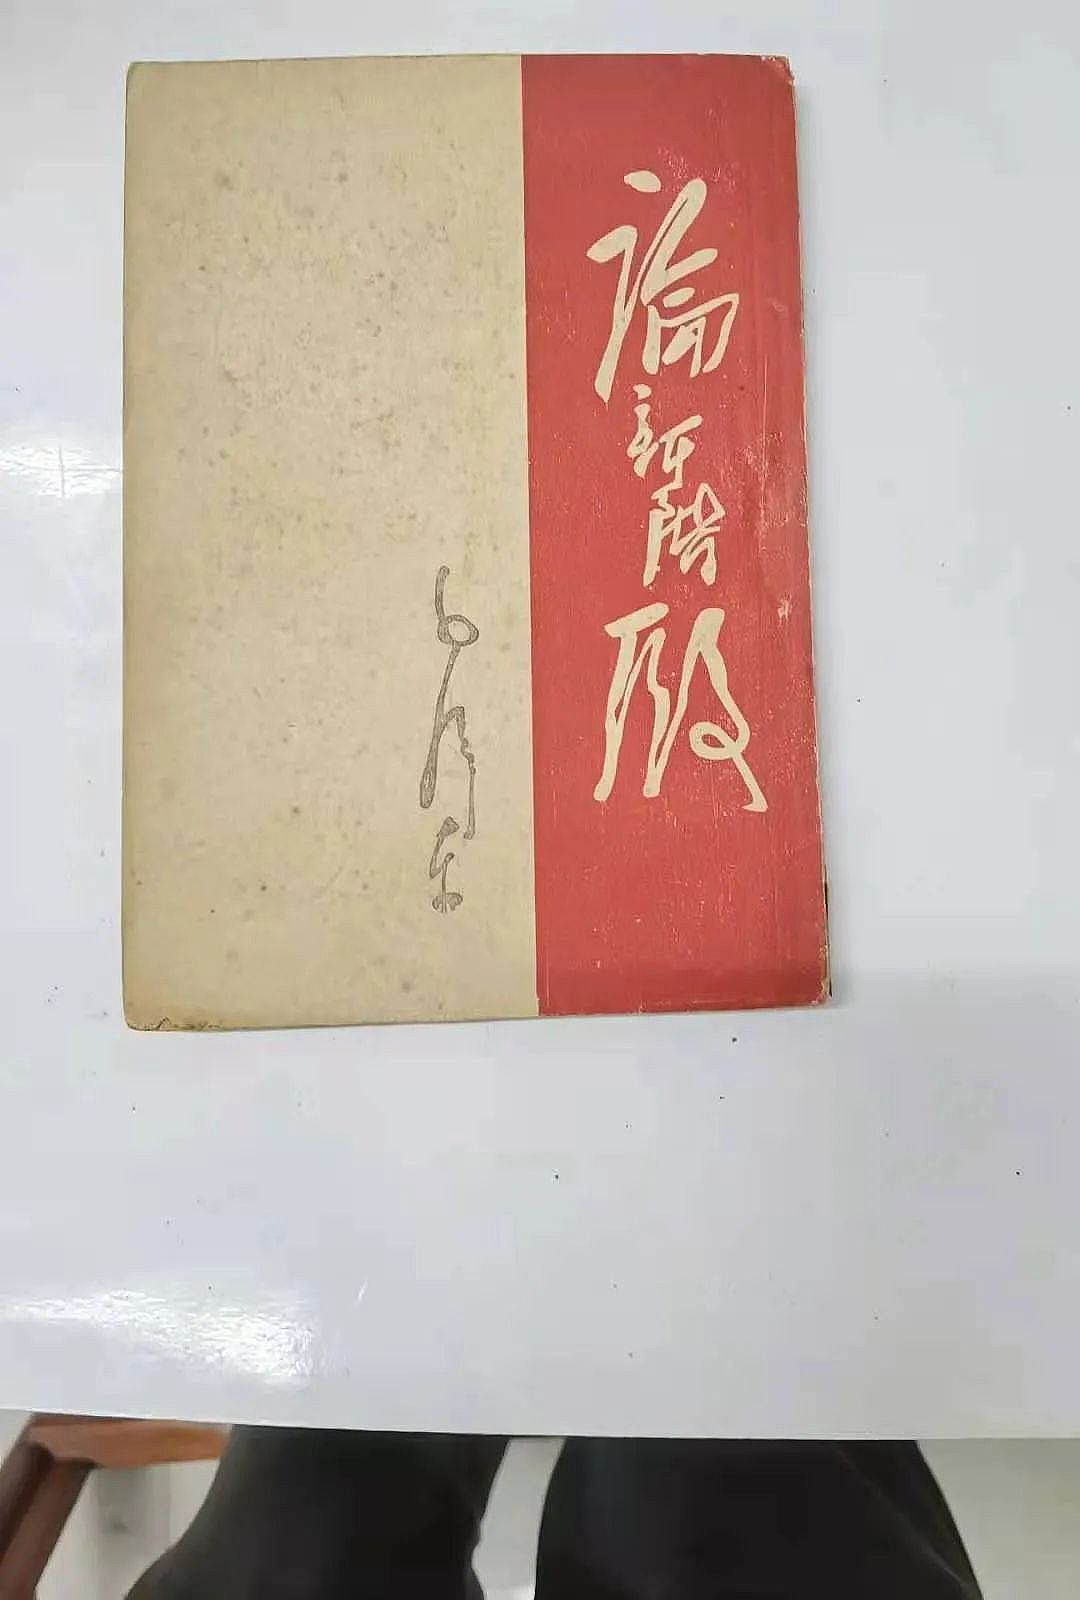 論新階段
毛澤东